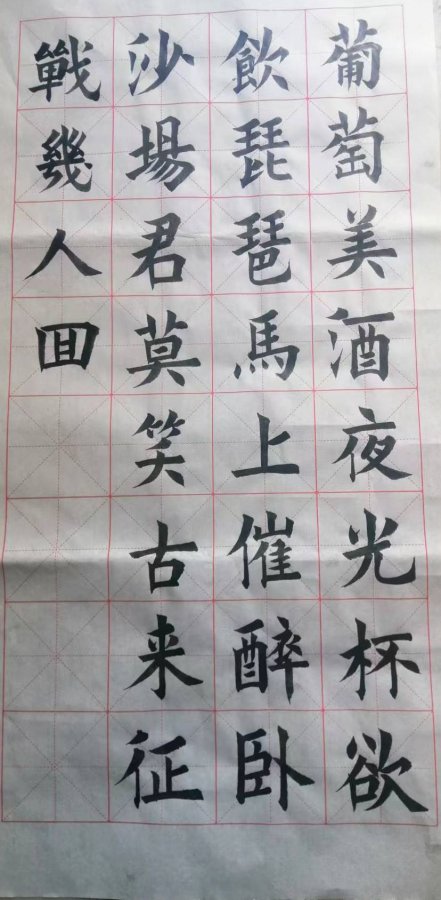 葡萄美酒夜光杯欲
飲琵琶馬上催醉卧
沙場君莫笑古来征
戰幾人囬